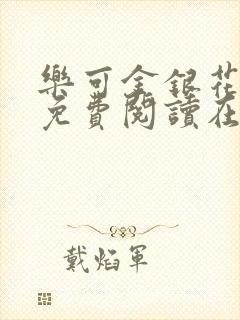 樂可金銀花
免費閱讀在
戴焰軍